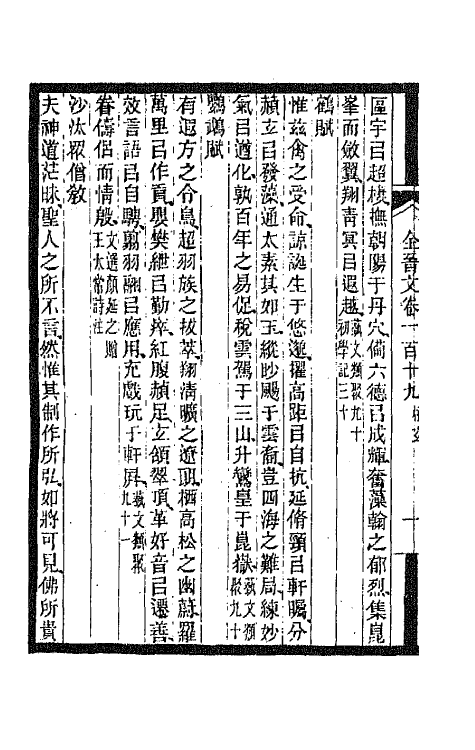 全晉文卷一百十九 桓玄 十
區宇㠯超棲撫朝陽于丹穴備六德㠯成輝奮藻翰之郁烈集崑
峯而斂翼翔青冥㠯遐越 藝文類聚九十 初學記三十
鶴賦
惟茲禽之受命諒誕生于悠邈擢高距㠯自抗延脩頸㠯軒矚分
赬玄㠯發藻通太素其如玉縱眇颺于雲裔豈四海之難局練妙
氣㠯遒化孰百年之易促稅雲駕于三山升鸞皇于崑嶽 藝文類聚九十
鸚鵡賦
有遐方之令鳥超羽族之拔萃翔清曠之遼朗栖高松之幽蔚羅
萬里㠯作貢嬰樊紲㠯勤瘁紅腹赬足玄頷翠頂革好音㠯遷善
效言語㠯自騁翦羽翮㠯應用充戲玩于軒屏 藝文類聚九十一
眷儔侶而情殷 文選顏延之贈王太常詩注
沙汰眾僧教
夫神道茫昧聖人之所不言然惟其制作所弘如將可見佛所貴